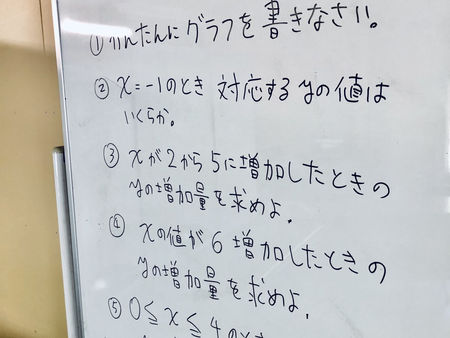 ① かんたんにグラフを書きなさい。
② x=-1のとき 対応する yの値は
いくらか。
③ xが2から5に増加したときの
yの増加量を求めよ.
④ xの値が 6 増加したときの
yの増加量を求めよ.
⑤ 0≦x≦4のとき